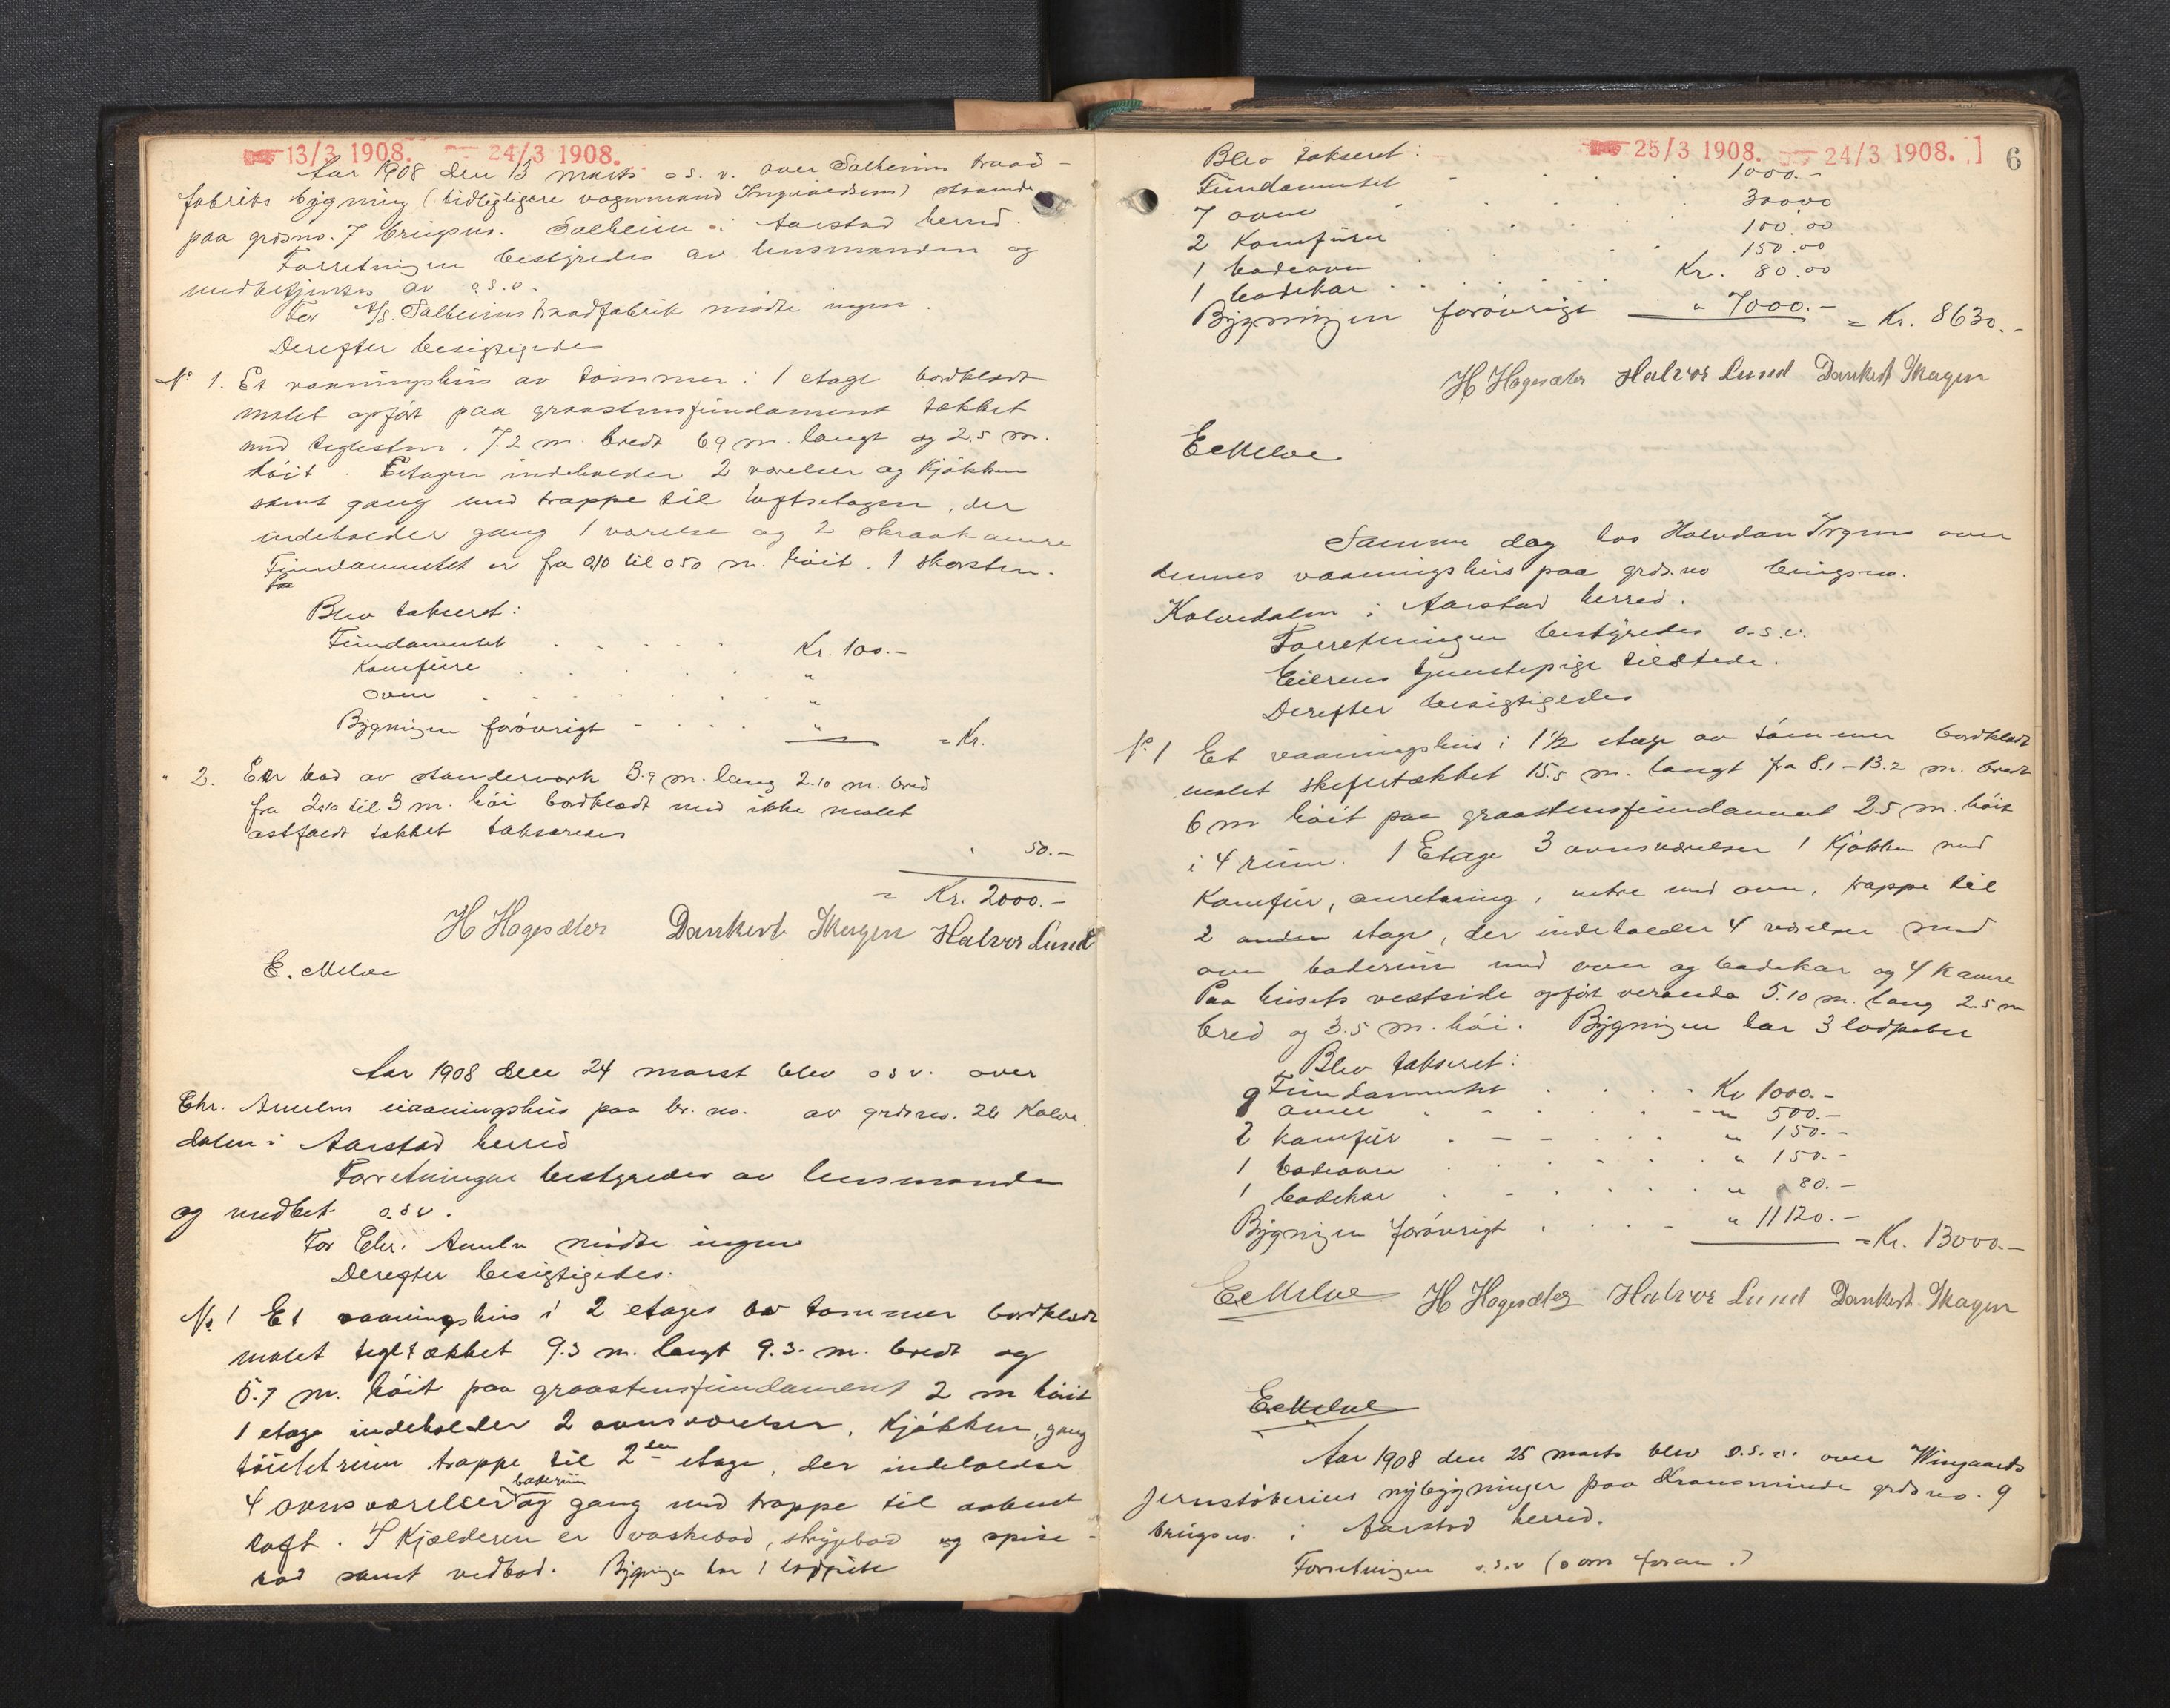 13/3 1908. 24/3 1908.
Aar 1908 den 13 marts o s. v. over Solheim traad-
fabriks bygning (tidligere vognmand Ingvaldsens) staaende
paa grdsno. 7 brugsno. Solheim i Aarstad herred.
Forretningen bestyredes av lensmanden og
medbetjentes av o s. v.
For A/S. Solheims traadfabrik mødte ingen.
Derefter besigtigedes
No 1. Et vaaningshus av tømmer i 1 etage bordklædt
malet opført paa graastensfundament tækket
med teglsten. 7.2 m. bredt 6.9 m. langt og 2.5 m.
høit. Etagen indeholder 2 værelser og kjøkken
samt gang med trappe til loftsetagen, der
indeholder gang 1 værelse og 2 skraakamre
Fundamentet er fra 0.10 til 0.50 m. høit. 1 skorsten.
Blev takseret:
Fundamentet Kr. 100.-
Komfüre "
ovn "
Bygningen forøvrigt " = Kr.
" 2. En bod av standerverk 3.9 m. lang 2.10 m. bred
fra 2.10 til 3 m. høi bordklædt men ikke malet
astfaldt tækket takseredes
" 50.-
= Kr. 2000.-
H Hagesæter Dankert Skagen Halvor Lund
E. Melve
Aar 1908 den 24 marst blev o s v. over
Chr. Amelns vaaningshus paa br. no. av grdsno. 26 Kalve
dalen i Aarstad herred
Forretningen bestyredes av lensmanden
og medbet. o. s v.
For Chr. Ameln mødte ingen
Derefter besigtigedes.
No 1 Et vaaningshus i 2 etages av tømmer bordklædt
malet tegltækket 9.3 m. langt 9.3. m. bredt og
6.7 m. høit paa graastensfundament 2 m høit
1 etage indeholder 2 ovnsværelser, kjøkken, gang
toiletrum trappe til 2den etage, der indeholder
baderum
4 ovnsværelser og gang med trappe til aabent
loft. I Kjælderen er vaskebod, strygebod og spise-
bod samt vedbod. Bygningen har 1 lodpibe
25/3 1908. 24/3 1908. ] 6
Blev takseret:
Fundamentet 1000.-
7 ovne 30000
2 Komfürer 100.00
1 badeovn 150.00
1 badekar Kr. 80.00
Bygningen forøvrigt " 7000.- = Kr. 8630.-
H Hagesæter Halvor Lund Dankert Skagen
E Melve
Samme dag hos Halvdan Irgens over
dennes vaaningshus paa grds.no brugsno.
Kalvedalen i Aarstad herred.
Forretningen bestyredes o. s. v.
Eierens tjenestepige tilstede.
Derefter besigtigedes
No 1 Et vaaningshus i 1 1/2 etage av tømmer bordklædt
malet skifertækket 15.5 m. langt fra 8.1 - 13.2 m. bredt
6 m høit paa graastensfundament 2.5 m. høit
i 4 rum. 1 Etage 3 ovnsværelser 1 Kjøkken med
Komfür, anretning, entre med ovn, trappe til
2 anden etage, der indeholder 4 værelser med
ovn baderum med ovn og badekar og 4 kamre
Paa husets vestside opført veranda 5.10 m. lang 2.5 m
bred og 3.5 m. høi. Bygningen har 3 lodpiber
Blev takseret:
Fundamentet Kr 1000.-
9 ovne " 500.-
2 komfür " 150.-
1 badeovn " 150.-
1 badekar " 80.-
Bygningen forøvrigt " 11120.- = Kr. 13000.-
E Melve H Hagesæter Halvor Lund Dankert Skagen
E Melve
Aar 1908 den 25 marts blev o. s. v. over Wingaards
jernstøberies nybygninger paa Kransminde grdsno. 9
brugsno. i Aarstad herred.
Forretningen o. s. v (som foran.)